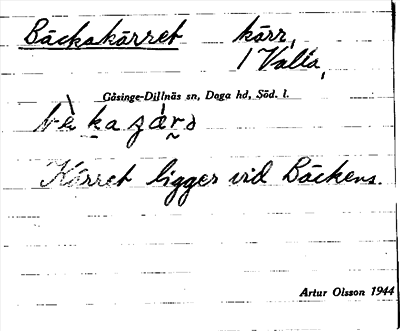 Bäckakärret kärr,
1 Valla,
Gåsinge-Dillnäs sn, Daga hd, Söd. l.
Kärret ligger vid Bäckens.
Artur Olsson 1944